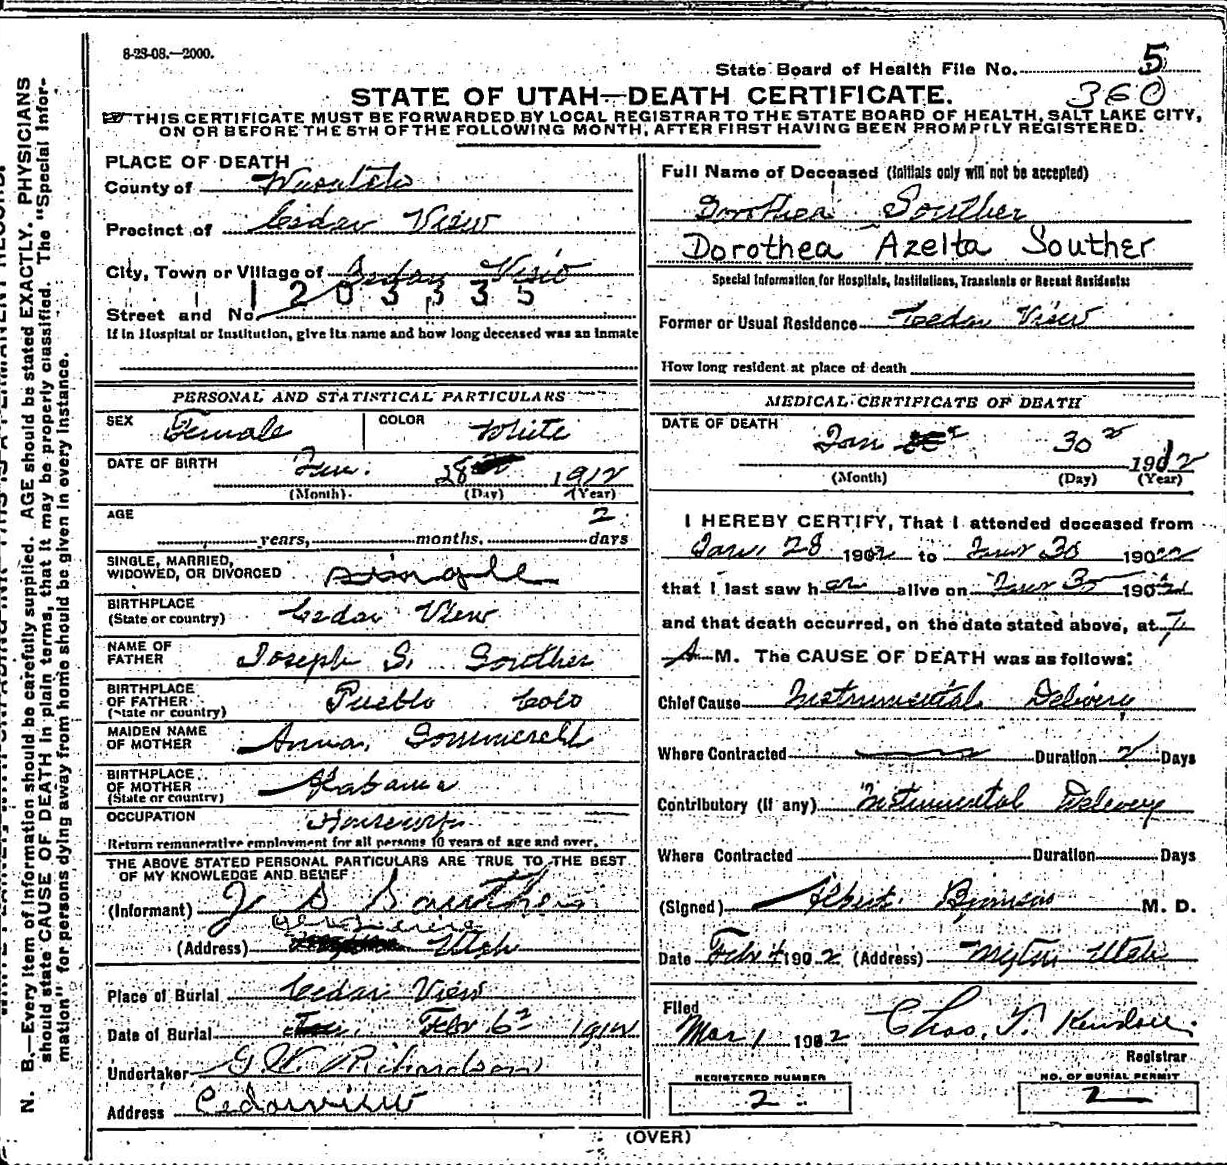 8-23-08.—2000.
State Board of Health File No. 5
360
STATE OF UTAH—DEATH CERTIFICATE.
THIS CERTIFICATE MUST BE FORWARDED BY LOCAL REGISTRAR TO THE STATE BOARD OF HEALTH, SALT LAKE CITY,
ON OR BEFORE THE 5TH OF THE FOLLOWING MONTH, AFTER FIRST HAVING BEEN PROMPTLY REGISTERED.
PLACE OF DEATH
County of Wasatch
Precinct of Cedar View
City, Town or Village of Cedar View
1203335
Street and No.
If in Hospital or Institution, give its name and how long deceased was an inmate
Full Name of Deceased (Initials only will not be accepted)
Dorothea Souther
Dorothea Azelta Souther
Special Information for Hospitals, Institutions, Transients or Recent Residents:
Former or Usual Residence Cedar View
How long resident at place of death
PERSONAL AND STATISTICAL PARTICULARS
SEX Female COLOR White
DATE OF BIRTH Jan. 28 1912
(Month) (Day) (Year)
AGE 2
years, months, days
SINGLE, MARRIED,
WIDOWED, OR DIVORCED single
BIRTHPLACE
(State or country) Cedar View
NAME OF
FATHER Joseph S. Souther
BIRTHPLACE
OF FATHER
(State or country) Pueblo Colo
MAIDEN NAME
OF MOTHER Anna
BIRTHPLACE
OF MOTHER
(State or country) Alabama
OCCUPATION Housework
Return remunerative employment for all persons 10 years of age and over.
THE ABOVE STATED PERSONAL PARTICULARS ARE TRUE TO THE BEST
OF MY KNOWLEDGE AND BELIEF
(Informant) J S Southers
(Address) Utah
Place of Burial Cedar View
Date of Burial Feb 6 1912
Undertaker G W Richardson
Address Cedarview
MEDICAL CERTIFICATE OF DEATH
DATE OF DEATH
Jan 30 1912
(Month) (Day) (Year)
I HEREBY CERTIFY, That I attended deceased from
Jan. 28 1902 to Jan 30 190
that I last saw her alive on Jan 30 190
and that death occurred, on the date stated above, at 7
A M. The CAUSE OF DEATH was as follows:
Chief Cause Instrumental Delivery
Where Contracted Duration 2 Days
Contributory (If any) Instumental Delivery
Where Contracted Duration Days
(Signed) Albert M. D.
Date Feb 4 1902 (Address) Myton Utah
Filed
Mar 1 1902 Chas. T. Kendall
Registrar
REGISTERED NUMBER
2
NO. OF BURIAL PERMIT
2
(OVER)
N. B.—Every item of information should be carefully supplied. AGE should be stated EXACTLY. PHYSICIANS
should state CAUSE OF DEATH in plain terms, that it may be properly classified. The "Special Infor-
mation" for persons dying away from home should be given in every instance.